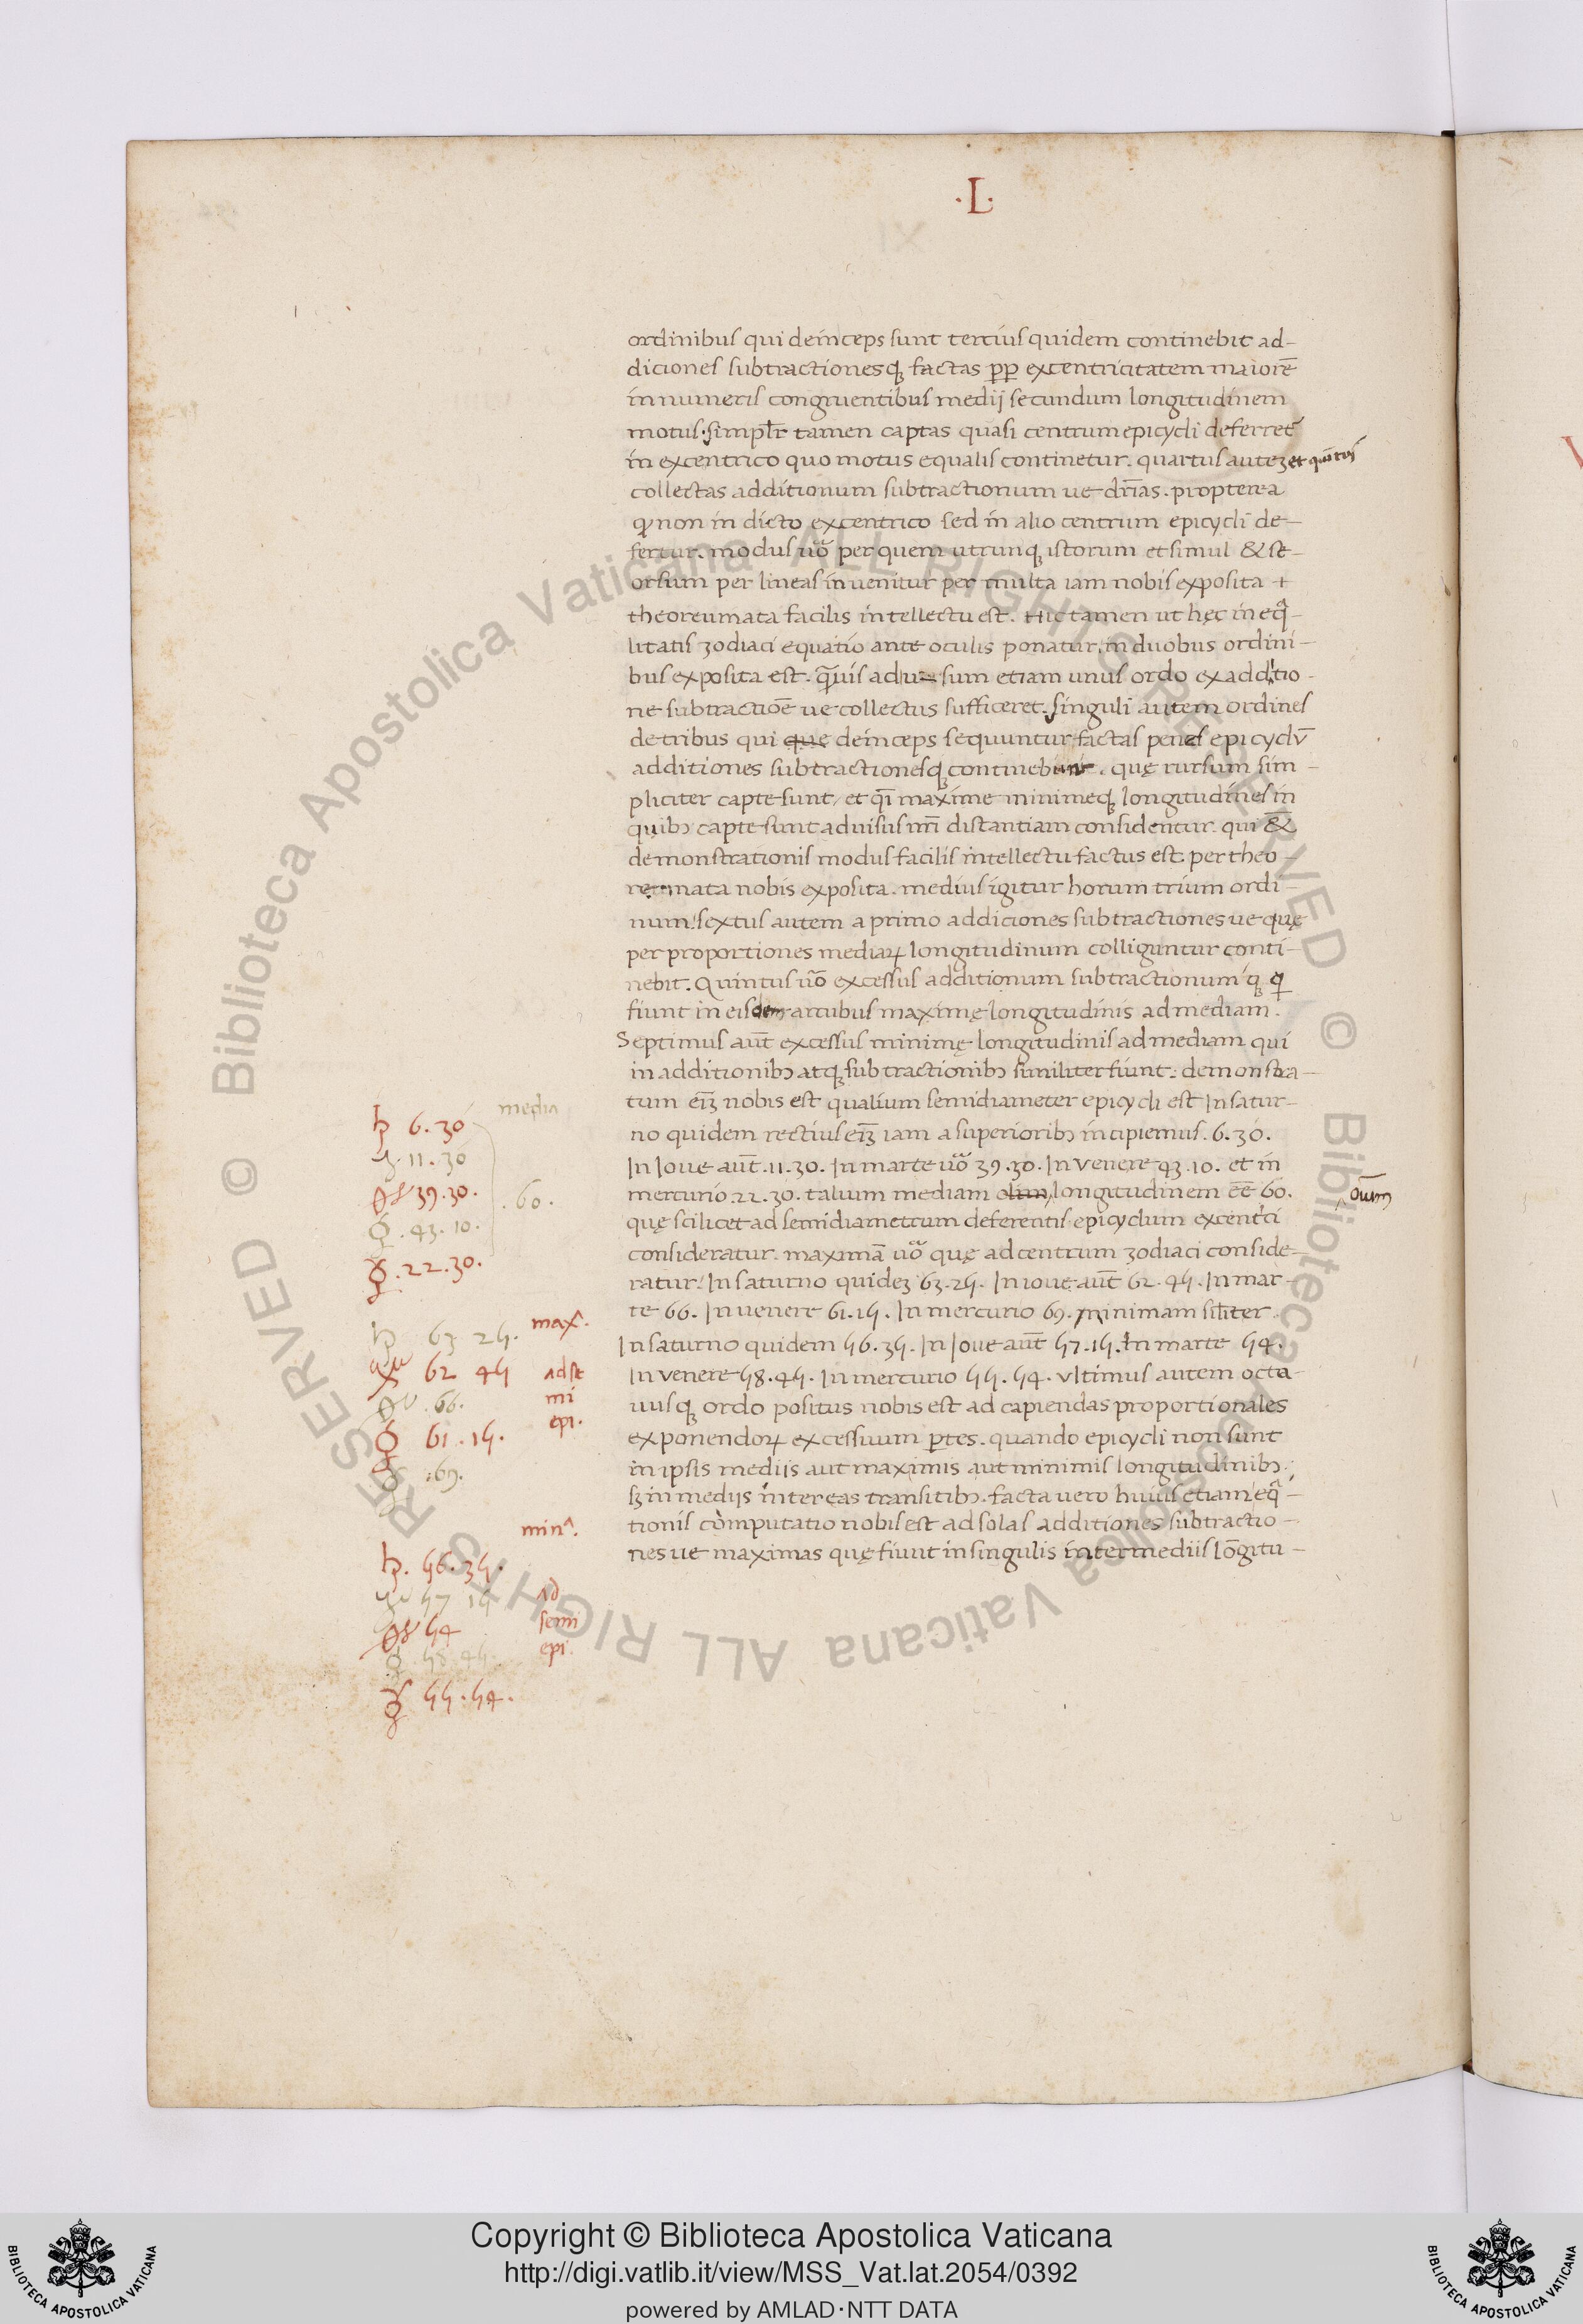 ·L·
ordinibus qui deinceps sunt tercius quidem continebit ad-
diciones subtractionesqꝫ factas ꝓp excentricitatem maiorē
in numeris congruentibus medij secundum longitudinem
motus. simplr̄ tamen captas quasi centrum epicycli deferret̄
in excentrico quo motus equalis continetur. quartus auteꝫ et quītus
collectas additionum subtractionum ue dr̄ias. propterea
qͥ non in dicto excentrico sed in alio centrum epicycli de-
fertur. modus uº per quem utrunqꝫ istorum et simul & se-
orsum per lineas inuenitur per multa iam nobis exposita +
theoreumata facilis intellectu est. Hic tamen ut hęc ineqͣ-
litatis zodiaci equatio ante oculis ponatur. in duobus ordini-
bus exposita est. qͣuis ad u sum etiam unus ordo ex additio-
ne subtractiōe ue collectus sufficeret. singuli autem ordines
de tribus qui que deinceps sequuntur factas penes epicyclū
additiones subtractionesqꝫ continebunt. quę rursum sim-
pliciter capte sunt, et qͣi maxime minimeqꝫ longitudines in
quibꝫ capte sunt ad uisus nr̄i distantiam considentur. qui &
demonstrationis modus facilis intellectu factus est. per theo-
remata nobis exposita. medius igitur horum trium ordi-
num. sextus autem a primo addiciones subtractiones ue quę
per proportiones mediaꝝ longitudinum colliguntur conti-
nebit. Quintus uō excessus additionum subtractionum qꝫ q
fiunt in eisdem arcubus maximę longitudinis ad mediam.
Septimus aut̄ excessus minimę longitudinis ad mediam qui
in additionibꝫ atqꝫ subtractionibꝫ similiter fiunt. demonstra-
tum eīꝫ nobis est qualium semidiameter epicycli est In satur-
no quidem rectius eīꝫ iam a superioribꝫ incipiemus. 6.30.
In Ioue aut̄. 11.30. In marte uº 39.30. In venere 43.10. et in
mercurio 22.30. talium mediam olim longitudinem ēe 60.
oīum
quę scilicet ad semidiametrum deferentis epicyclum excentͥci
consideratur. maximā uº quę ad centrum zodiaci conside-
ratur. In saturno quideꝫ 63.25. In ioue aut̄ 62.45. In mar-
te 66. In venere 61.15. In mercurio 69. Minimam silīter.
In saturno quidem 56.35. In Ioue aut̄ 57.15. In marte 54.
In venere 58.45. In mercurio 55.54. vltimus autem octa-
uusqꝫ ordo positus nobis est ad capiendas proportionales
exponendoꝝ excessuum ꝑtes. quando epicycli non sunt
in ipsis mediis aut maximis aut minimis longitudinibꝫ.
sꝫ in medijs inter eas transitibꝫ. facta uero huius etiam eqͣ-
tionis computatio nobis est ad solas additiones subtractio-
nes ue maximas quę fiunt in singulis intermediis lōgitu-
media
♄ 6.30
♃ .11.30
♂ 39.30.
.60.
♀ .43.10.
☿ .22.30.
maxͣ.
♄ 63 25.
♃ 62 45
ad se
mi
epi.
♂ .66.
♀ 61.15.
☿ .69.
minͣ.
♄. 56.35.
♃ 57 15
ad
semi
epi.
♂ 54
♀ .58.45
☿ 55.54.
© Biblioteca Apostolica Vaticana ALL RIGHTS RESERVED © Biblioteca Apostolica Vaticana ALL RIGHTS RESERVED
BIBLIOTECA APOSTOLICA VATICANA
Copyright © Biblioteca Apostolica Vaticana
http://digi.vatlib.it/view/MSS_Vat.lat.2054/0392
powered by AMLAD·NTT DATA
BIBLIOTECA APOSTOLICA VATICANA